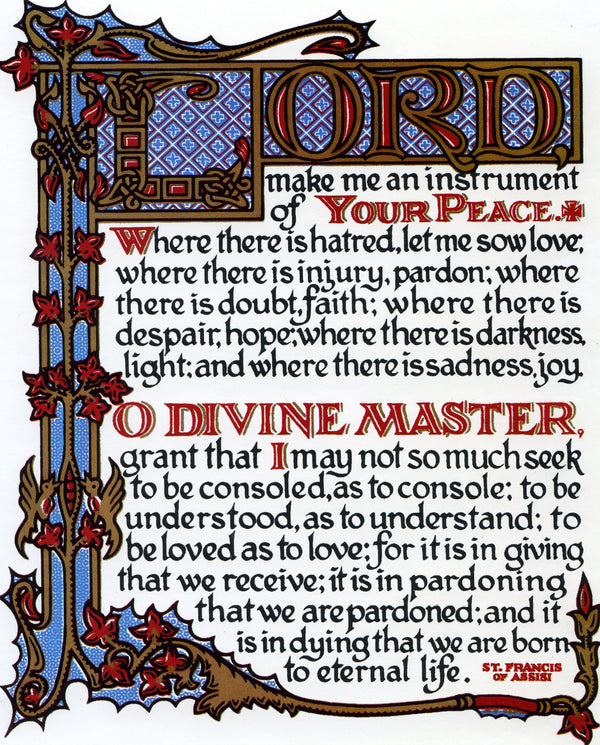 LORD,
make me an instrument
of YOUR PEACE.✠
Where there is hatred, let me sow love;
where there is injury, pardon; where
there is doubt, faith; where there is
despair, hope; where there is darkness,
light; and where there is sadness, joy.
O DIVINE MASTER,
grant that I may not so much seek
to be consoled, as to console; to be
understood, as to understand; to
be loved as to love; for it is in giving
that we receive; it is in pardoning
that we are pardoned; and it
is in dying that we are born
to eternal life.
ST. FRANCIS
OF ASSISI